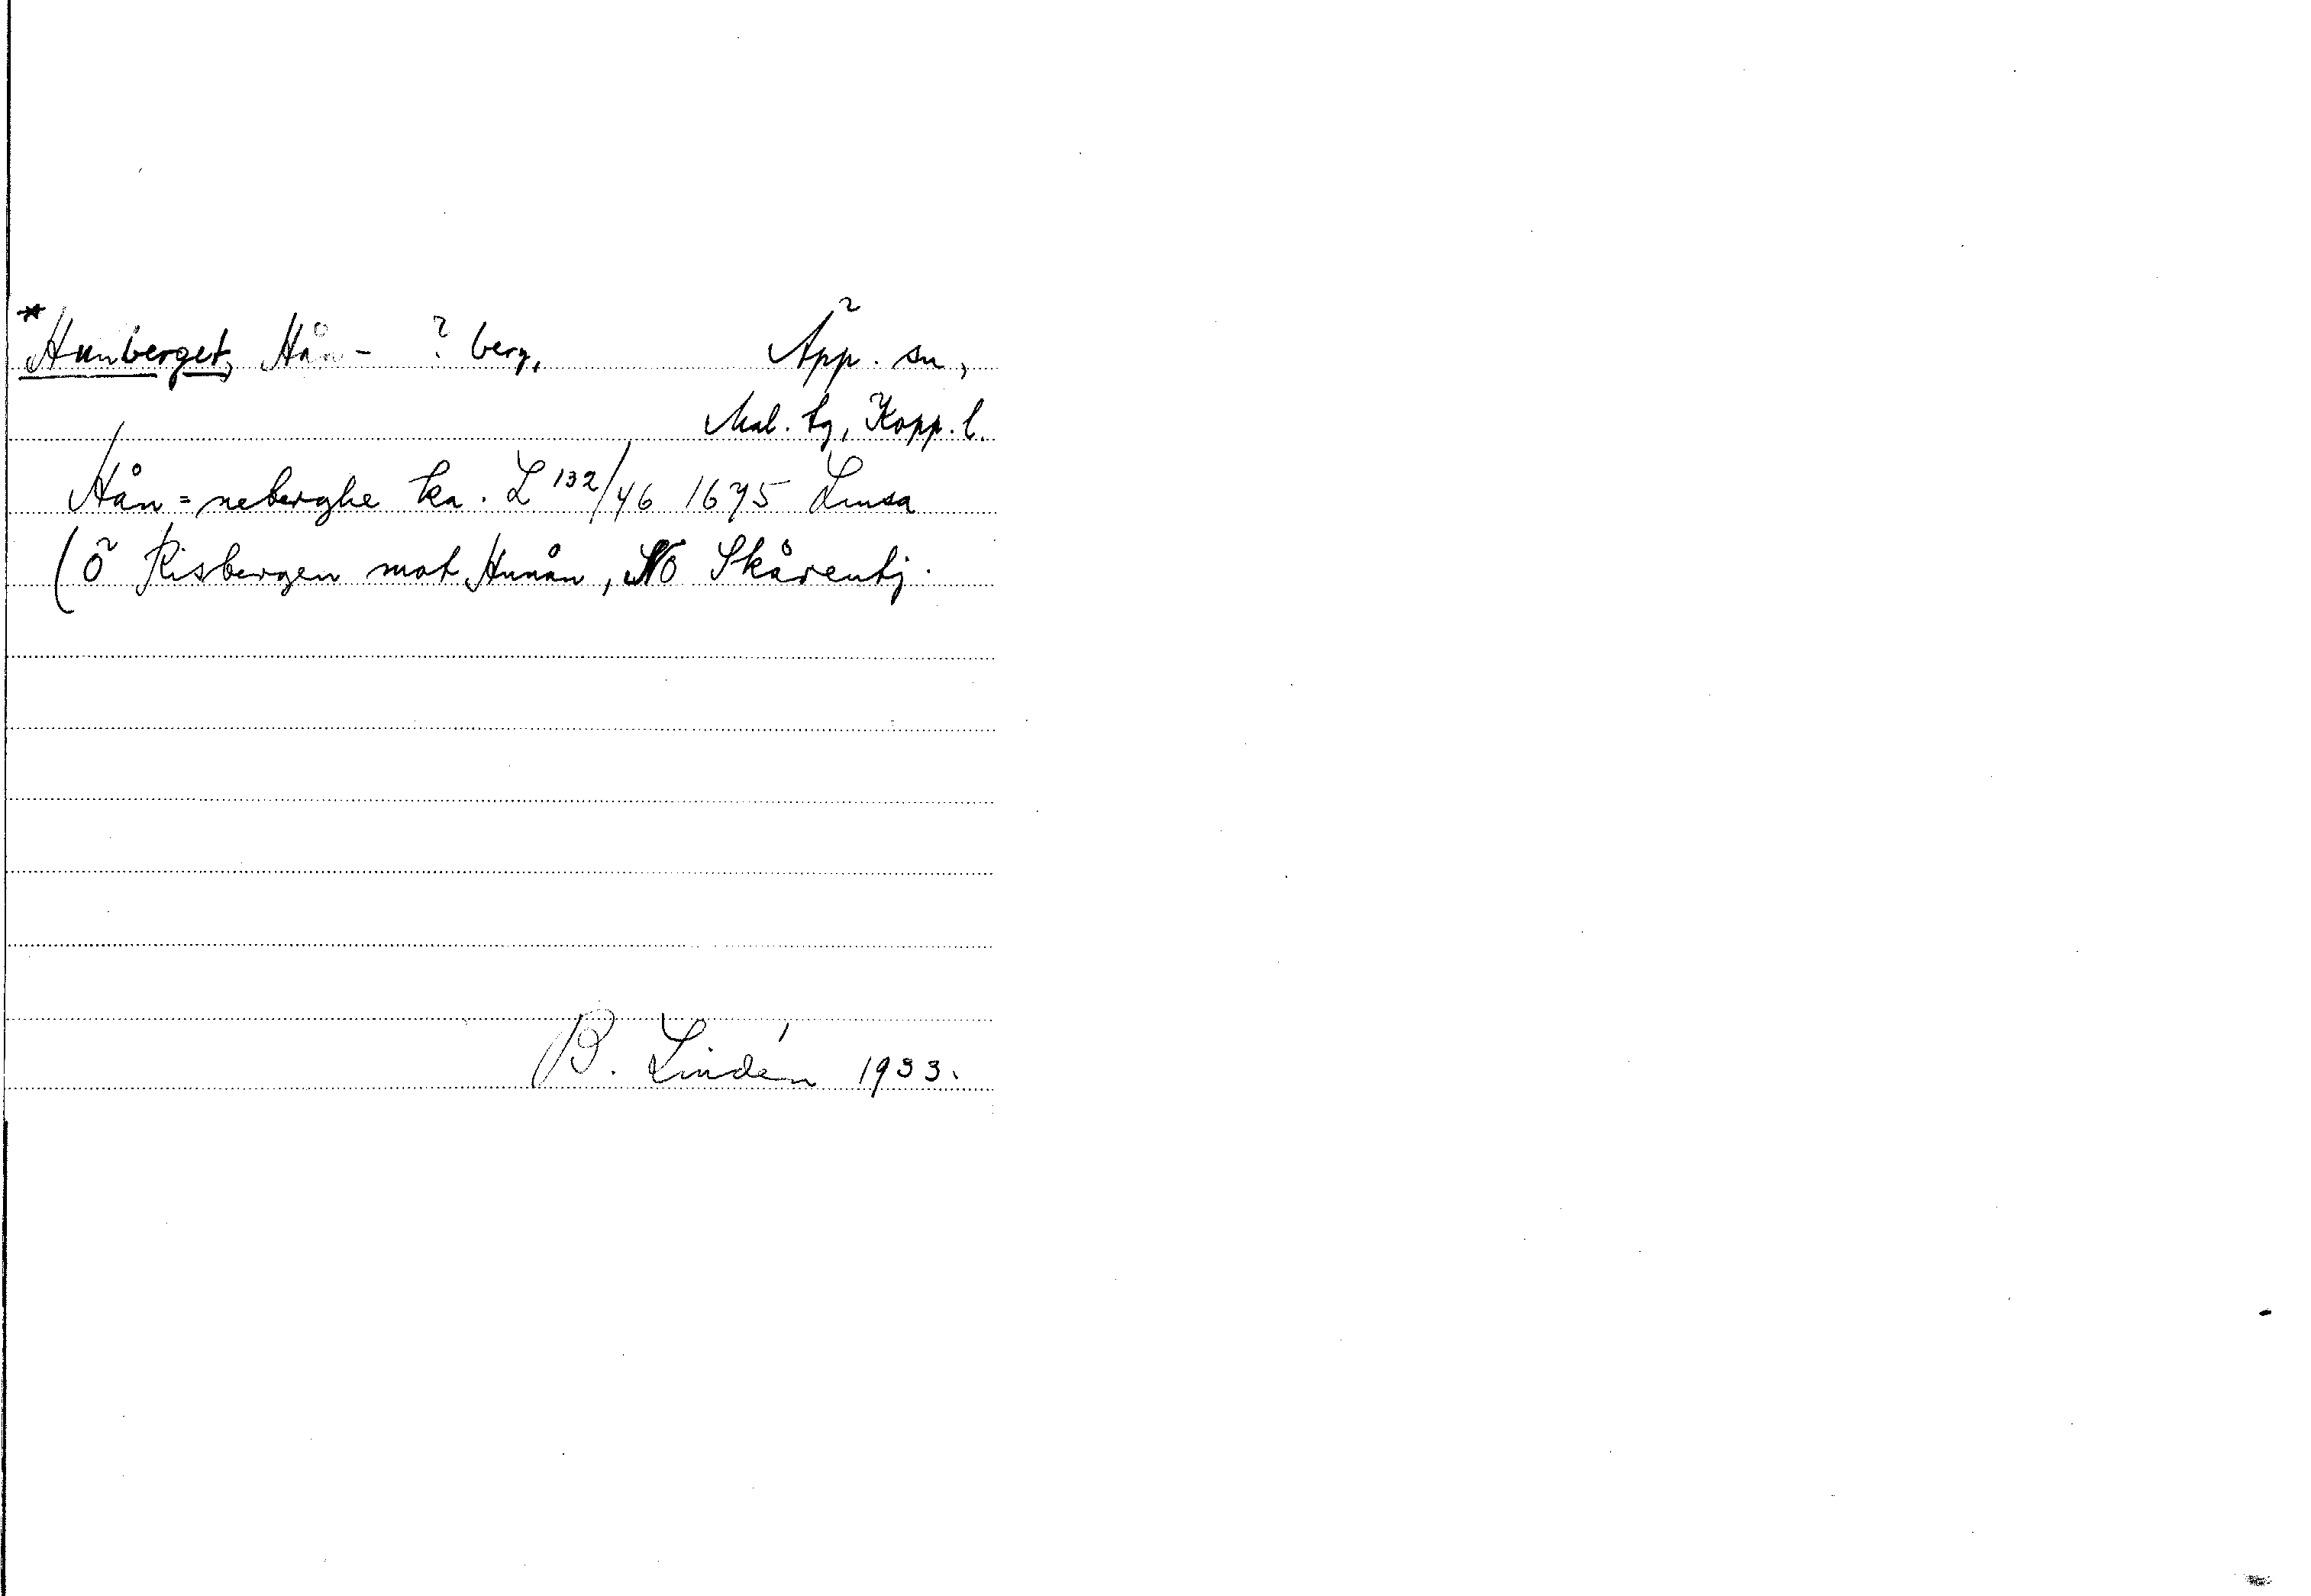 *Hunberget, Hån- ? berg, Äpp. sn,
Mal. tg, Kopp. l.
Hån=neberghe ka. L 132/46 1675 Limsa
(Ö Risbergen mot Hunån, NÖ Skårentj.
B. Lindén 1933.